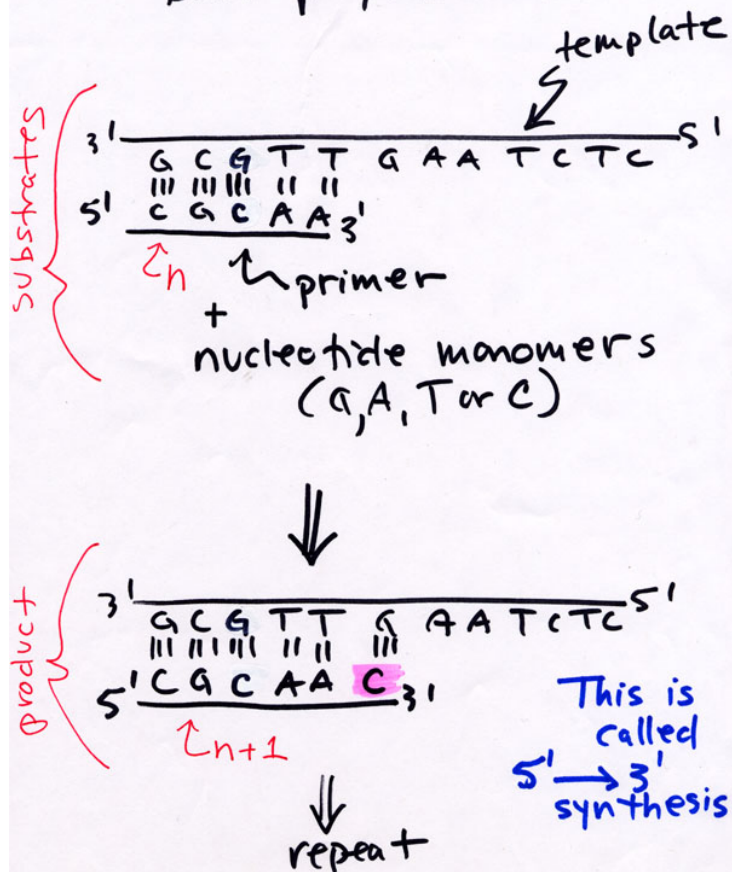 template
substrates
3' 5'
G C G T T G A A T C T C
5' C G C A A 3'
n primer
+
nucleotide monomers
(G, A, T or C)
product
3' 5'
G C G T T G A A T C T C
5' C G C A A C 3'
n+1
This is
called
5' → 3'
synthesis
repeat